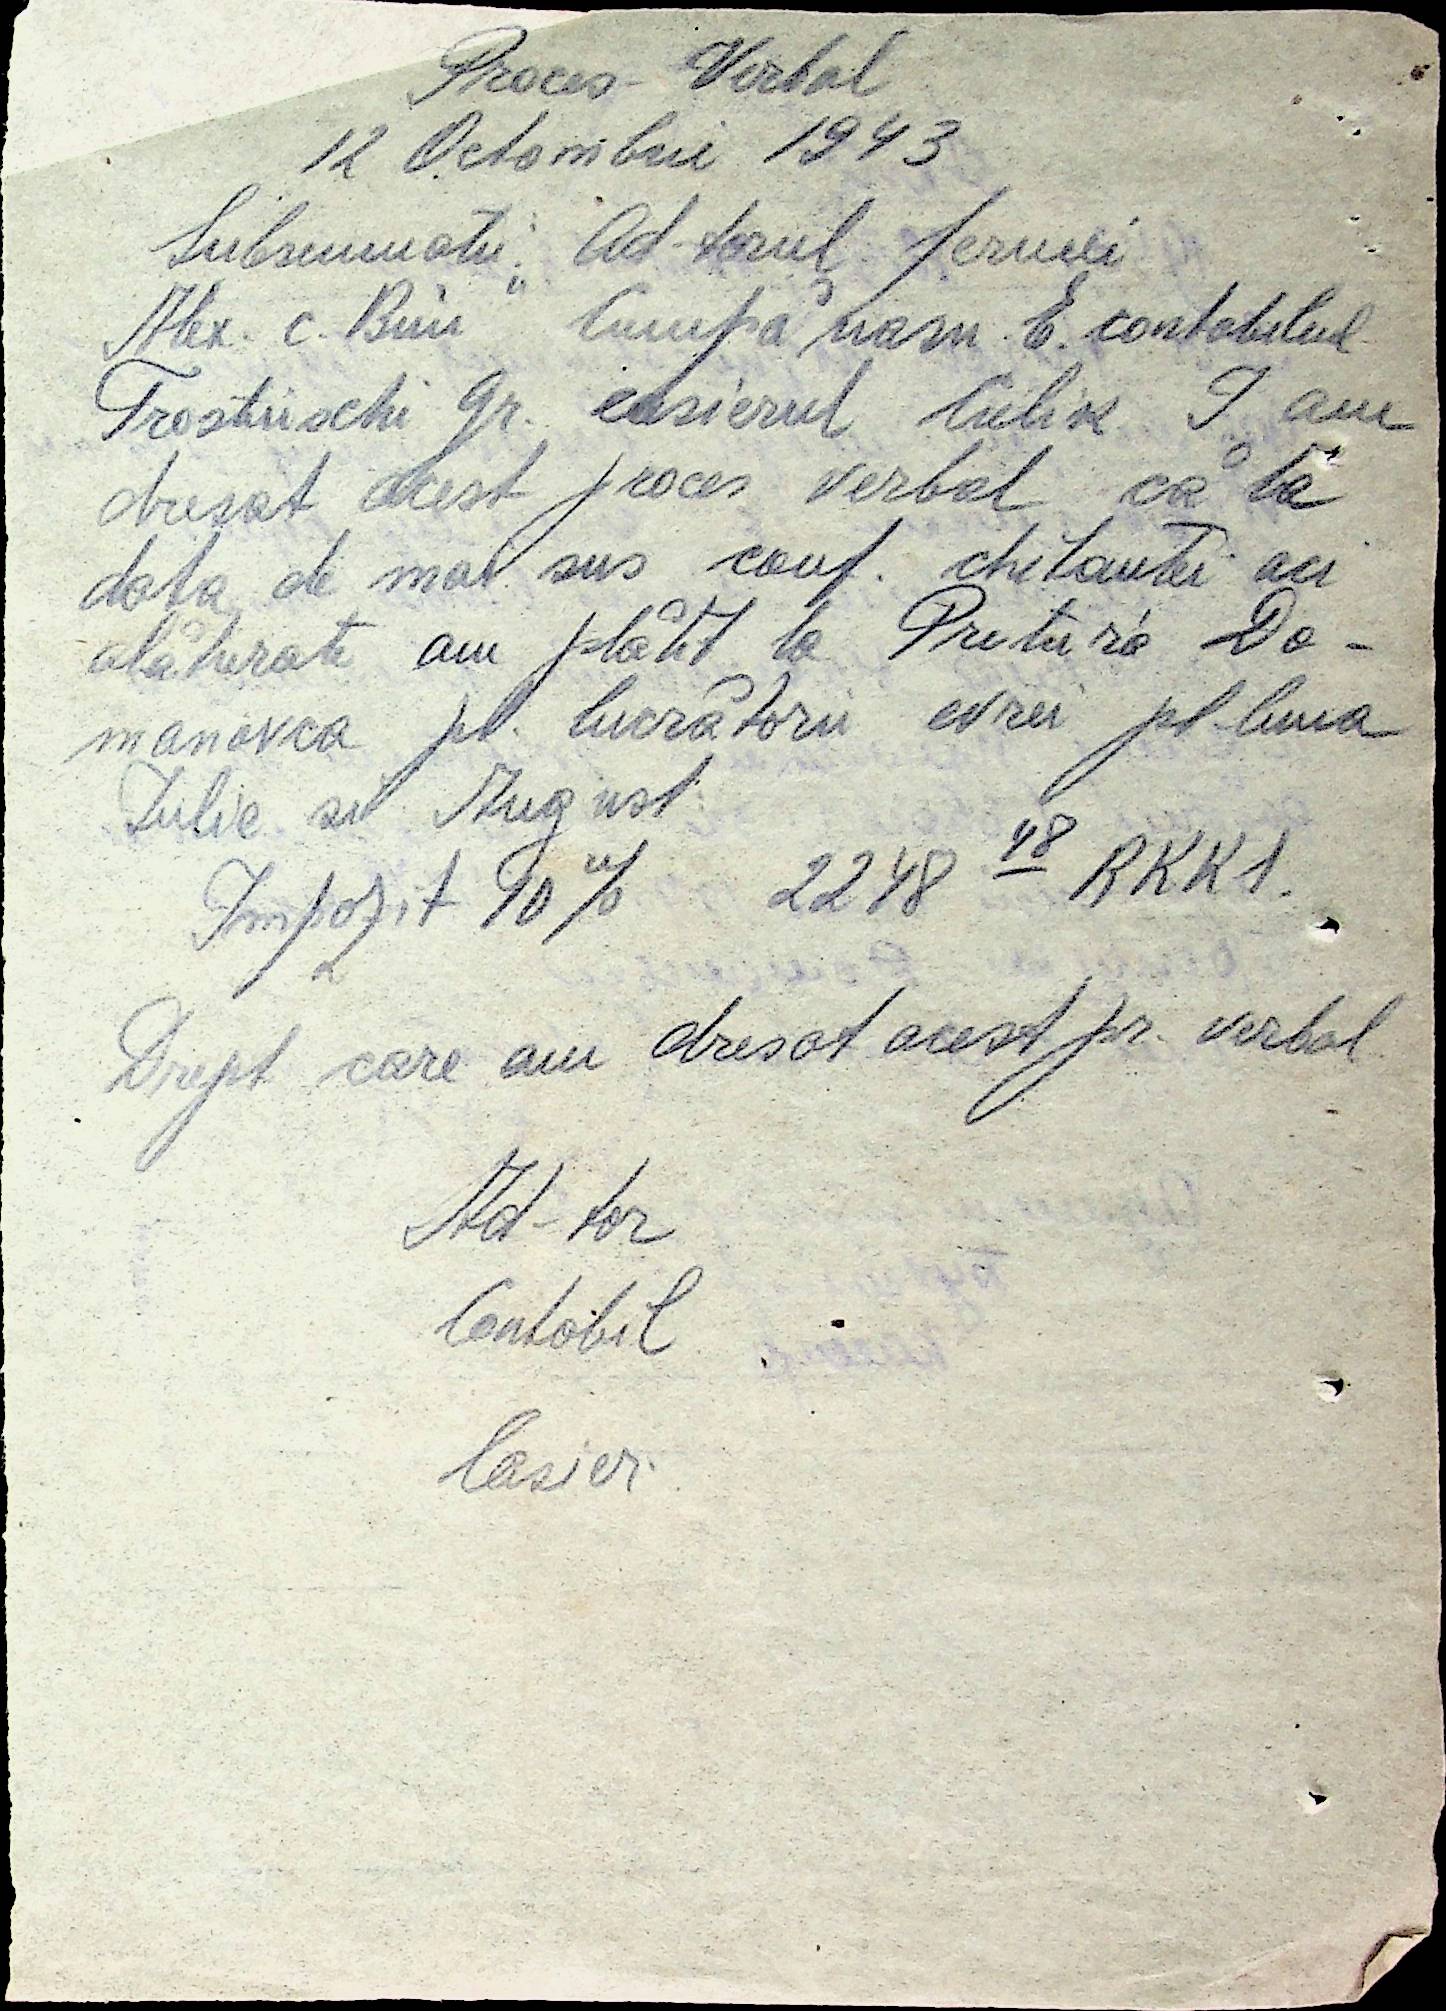 Proces-Verbal
12 Octombrie 1943
Subsemnatii: Ad-torul fermei
"Alex. c. Bun" Cumpănasu E. contabilul
Trostinschi Gr. casierul Culik I am
dresat acest proces verbal că la
data de mai sus conf. chitantei aci
alăturate am plătit la Pretura Do-
manovca pt. lucrătorii evrei pt luna
Iulie si August
Impozit 10% 2248 48 RKKS.
Drept care am dresat acest pr. verbal
Ad-tor
Contabil
Casier.